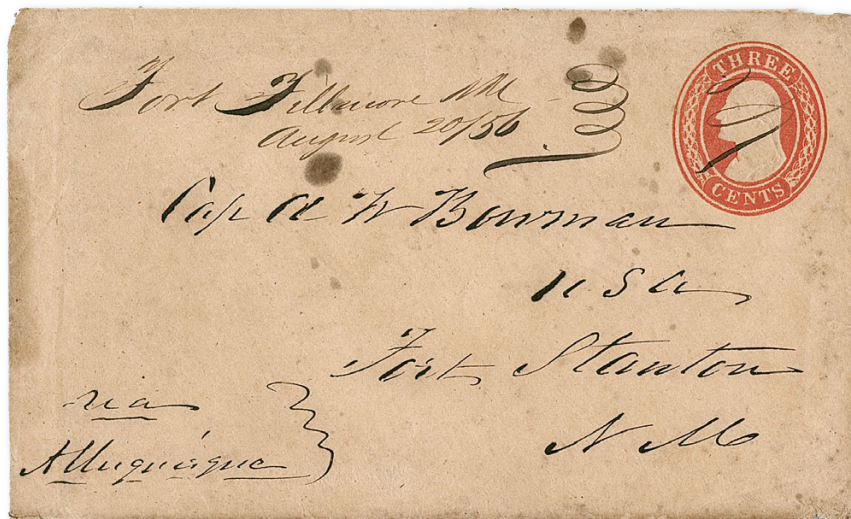 Fort Fillmore NM
August 20/56
THREE
CENTS
Cap A W Bowman
U S A
Fort Stanton
N M
via
Albuquerque